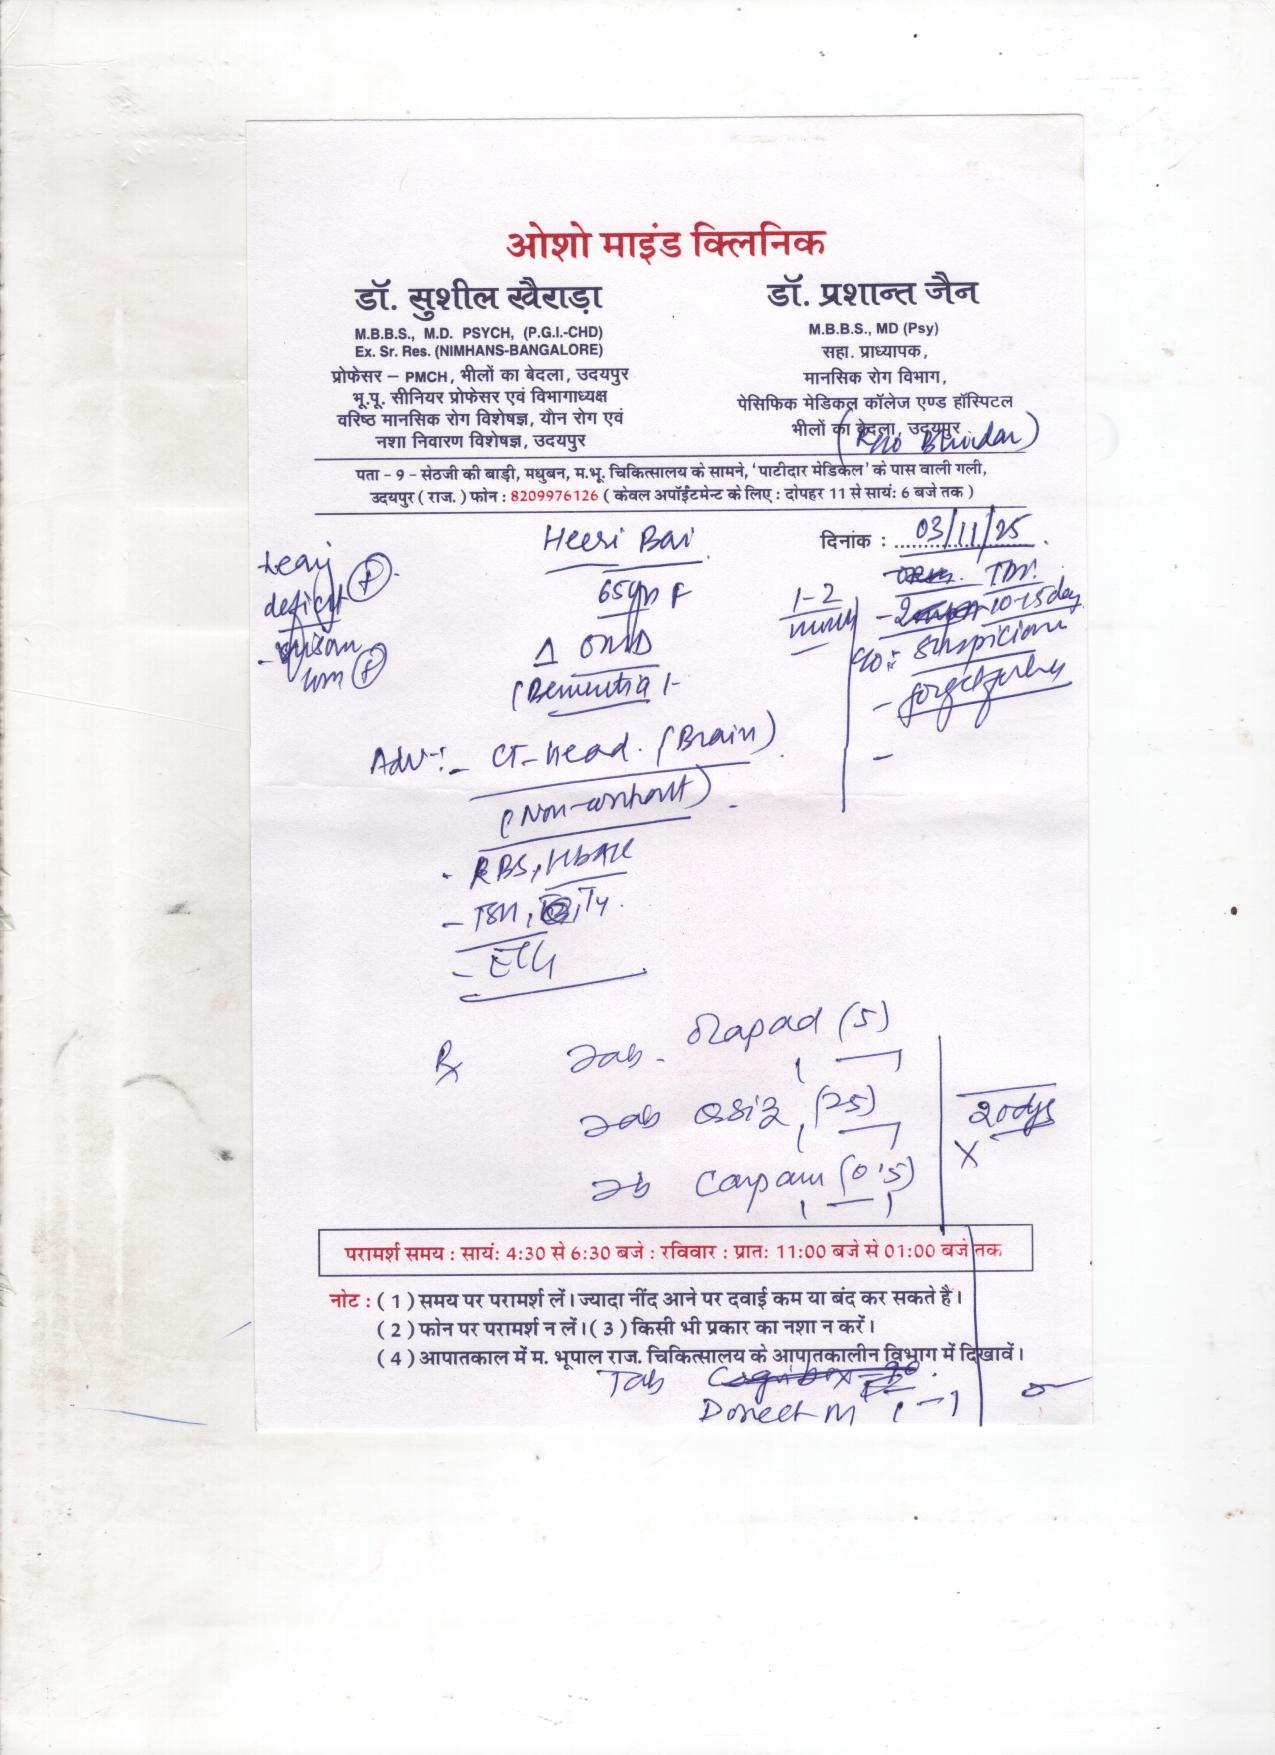 ओशो माइंड क्लिनिक
डॉ. सुशील खैराड़ा
M.B.B.S., M.D. PSYCH, (P.G.I.-CHD)
Ex. Sr. Res. (NIMHANS-BANGALORE)
प्रोफेसर – PMCH, भीलों का बेदला, उदयपुर
भू.पू. सीनियर प्रोफेसर एवं विभागाध्यक्ष
वरिष्ठ मानसिक रोग विशेषज्ञ, यौन रोग एवं
नशा निवारण विशेषज्ञ, उदयपुर
डॉ. प्रशान्त जैन
M.B.B.S., MD (Psy)
सहा. प्राध्यापक,
मानसिक रोग विभाग,
पेसिफिक मेडिकल कॉलेज एण्ड हॉस्पिटल
भीलों का बेदला, उदयपुर
(R/o Bhindar)
पता - 9 - सेठजी की बाड़ी, मधुबन, म.भू. चिकित्सालय के सामने, 'पाटीदार मेडिकल' के पास वाली गली,
उदयपुर ( राज. ) फोन : 8209976126 ( केवल अपॉईंटमेन्ट के लिए : दोपहर 11 से सायं: 6 बजे तक )
Heeri Bai
दिनांक : 03/11/25
65yrs F
deficit (+)
(+)
Δ OMD
(Dementia)-
1-2
- 10-15 day
c/o :- Suspicious
- forgetfulness
-
Adv :- CT-head. (Brain)
- RBS, HbA1c
- TSH, T3, T4.
- ECG
Rx Tab. Olapad (5)
1
Tab (25)
1
20 dys
X
Tab (0.5)
1 — 1
परामर्श समय : सायं: 4:30 से 6:30 बजे : रविवार : प्रात: 11:00 बजे से 01:00 बजे तक
नोट : ( 1 ) समय पर परामर्श लें। ज्यादा नींद आने पर दवाई कम या बंद कर सकते है।
( 2 ) फोन पर परामर्श न लें। ( 3 ) किसी भी प्रकार का नशा न करें।
( 4 ) आपातकाल में म. भूपाल राज. चिकित्सालय के आपातकालीन विभाग में दिखावें।
Tab
Donect M 1 - 1